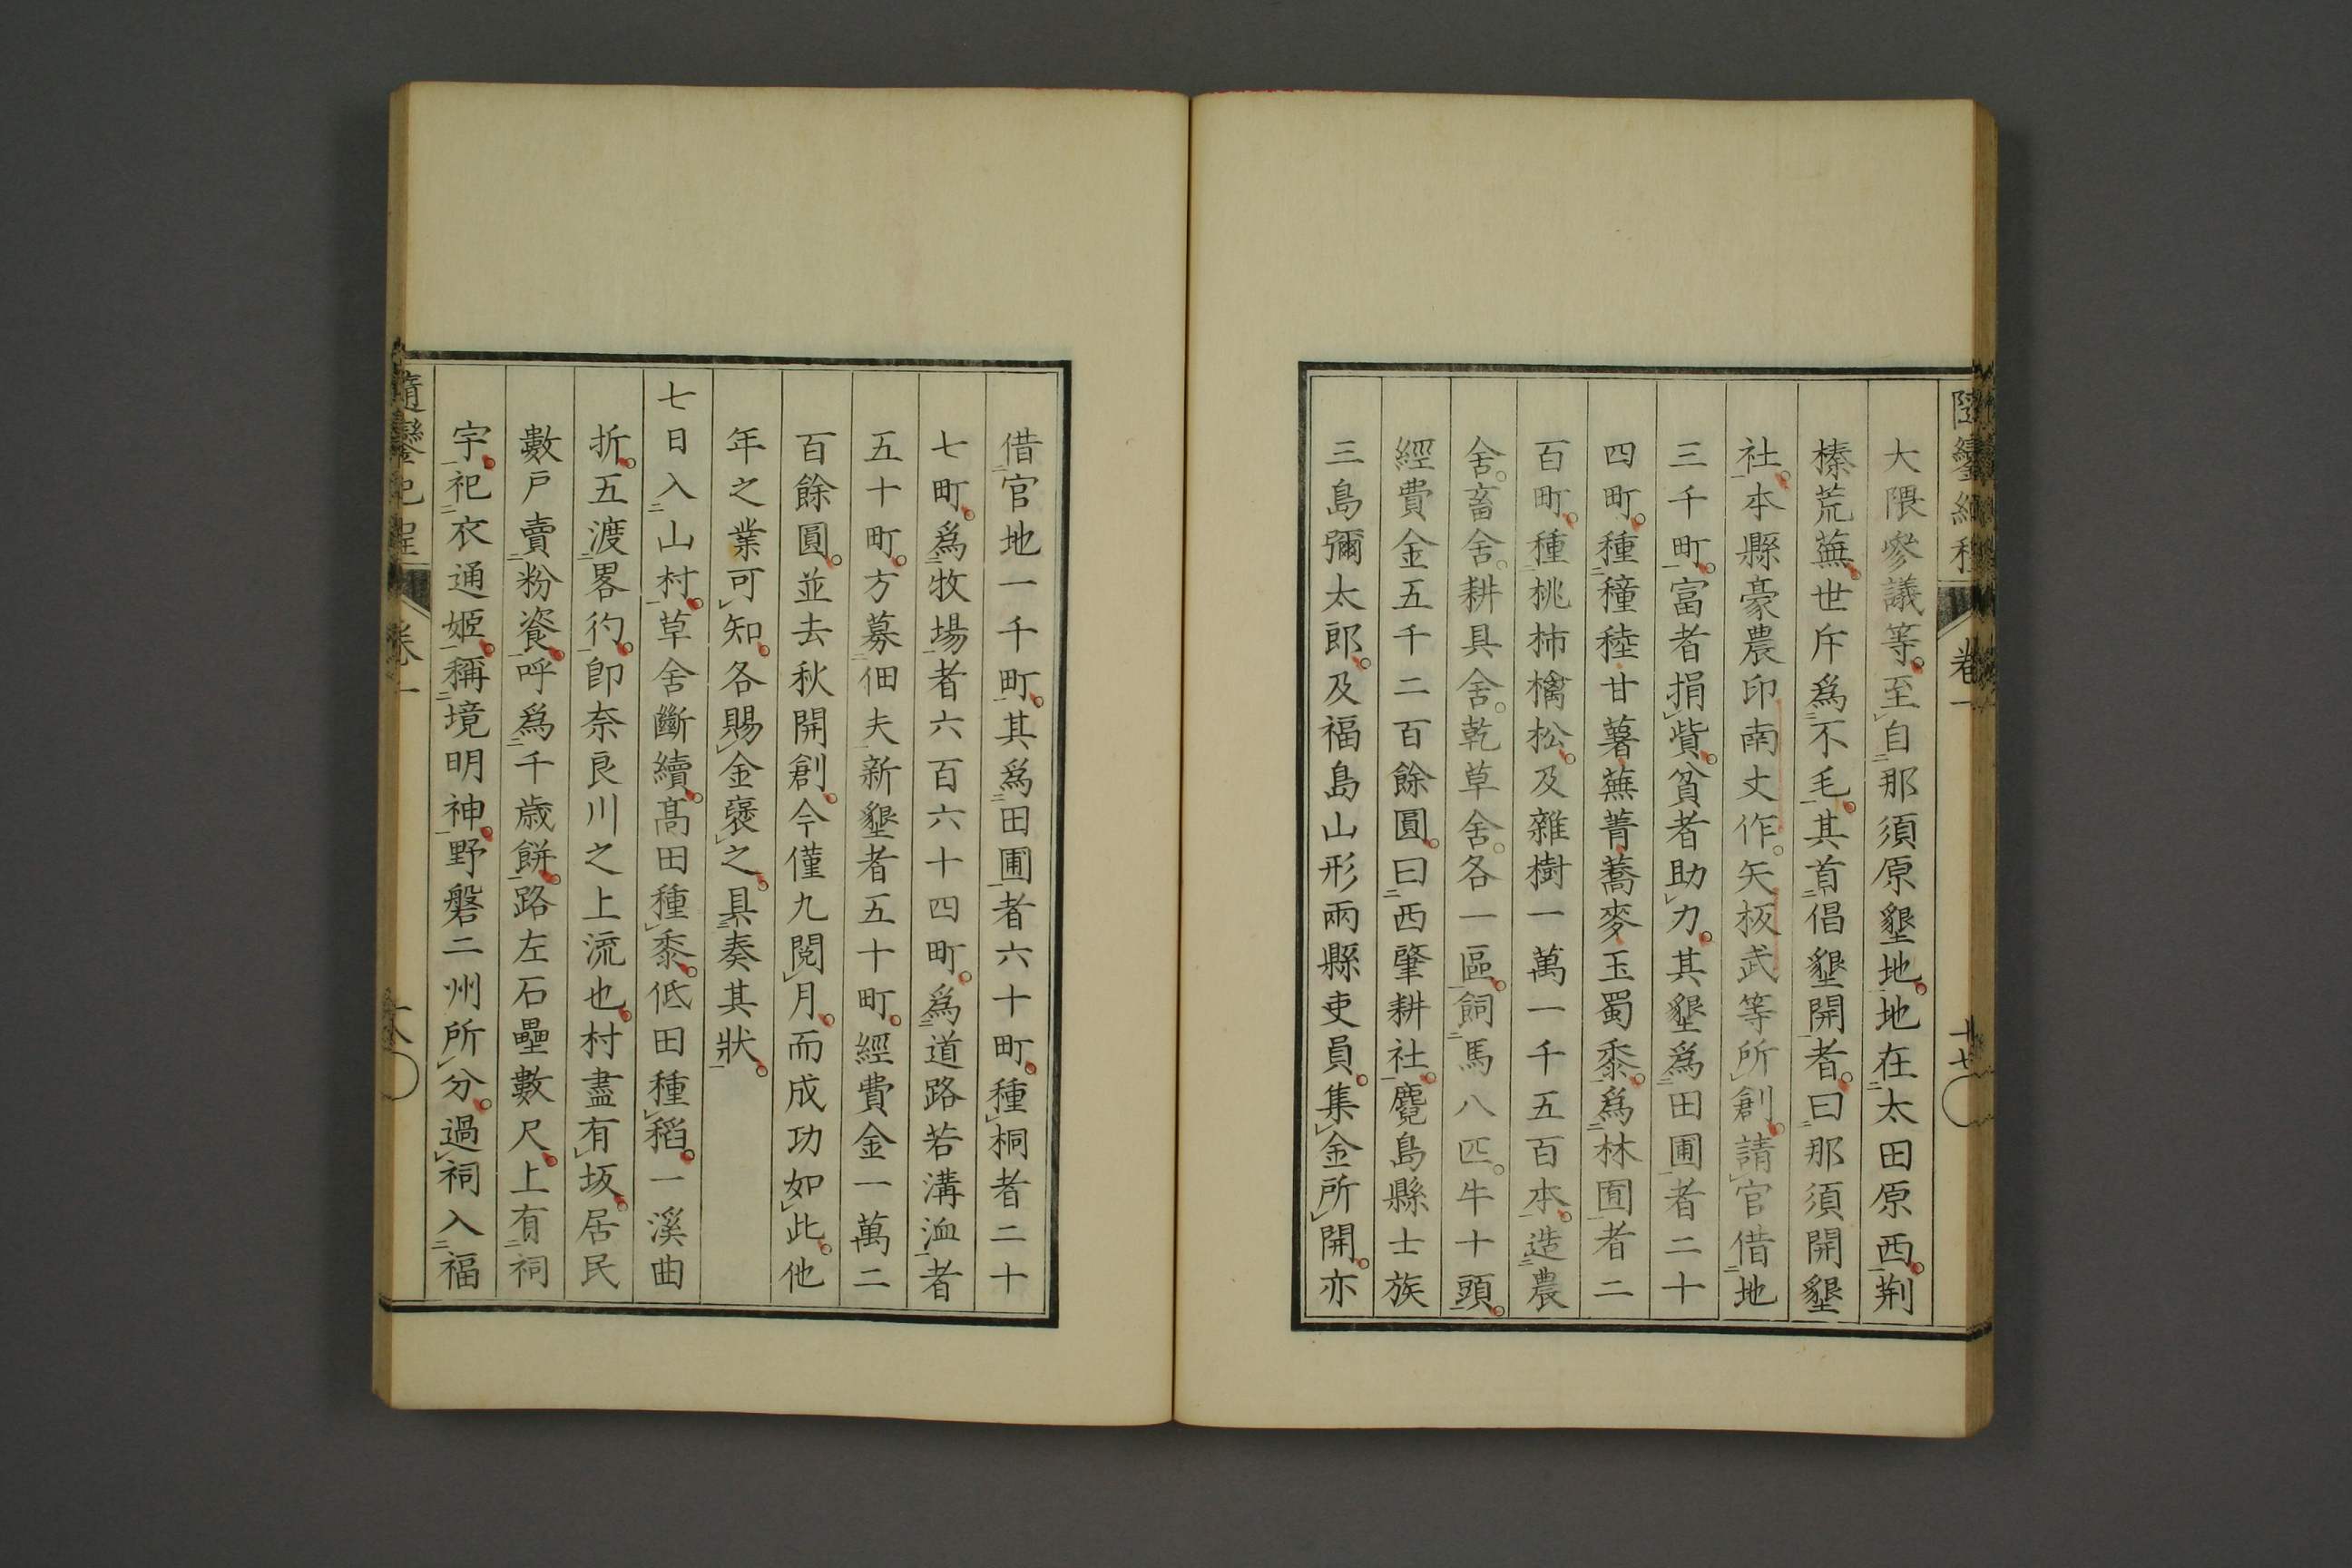 大隈參議等。至自那須原墾地。地在太田原西。荆
榛荒蕪。世斥爲不毛。其首倡墾開者。曰那須開墾
社。本縣豪農印南丈作。矢板武等所創。請官借地
三千町。富者捐貲。貧者助力。其墾爲田圃者二十
四町。種穜稑甘薯蕪菁蕎麥玉蜀黍。爲林囿者二
百町。種桃柿檎松。及雜樹一萬一千五百本。造農
舍。畜舍。耕具舍。乾草舍。各一區。飼馬八匹。牛十頭。
經費金五千二百餘圓。曰西肇耕社。麑島縣士族
三島彌太郎。及福島山形兩縣吏員。集金所開。亦
借官地一千町。其爲田圃者六十町。種桐者二十
七町。爲牧場者六百六十四町。爲道路若溝洫者
五十町。方募佃夫新墾者五十町。經費金一萬二
百餘圓。並去秋開創。今僅九閲月。而成功如此。他
年之業可知。各賜金褒之。具奏其狀。
七日入山村。草舍斷續。高田種黍。低田種稻。一溪曲
折。五渡畧彴。卽奈良川之上流也。村盡有坂。居民
數戶賣粉餈。呼爲千歲餅。路左石壘數尺。上有祠
宇。祀衣通姬。稱境明神。野磐二州所分。過祠入福
隨鑾紀程
卷一
十七